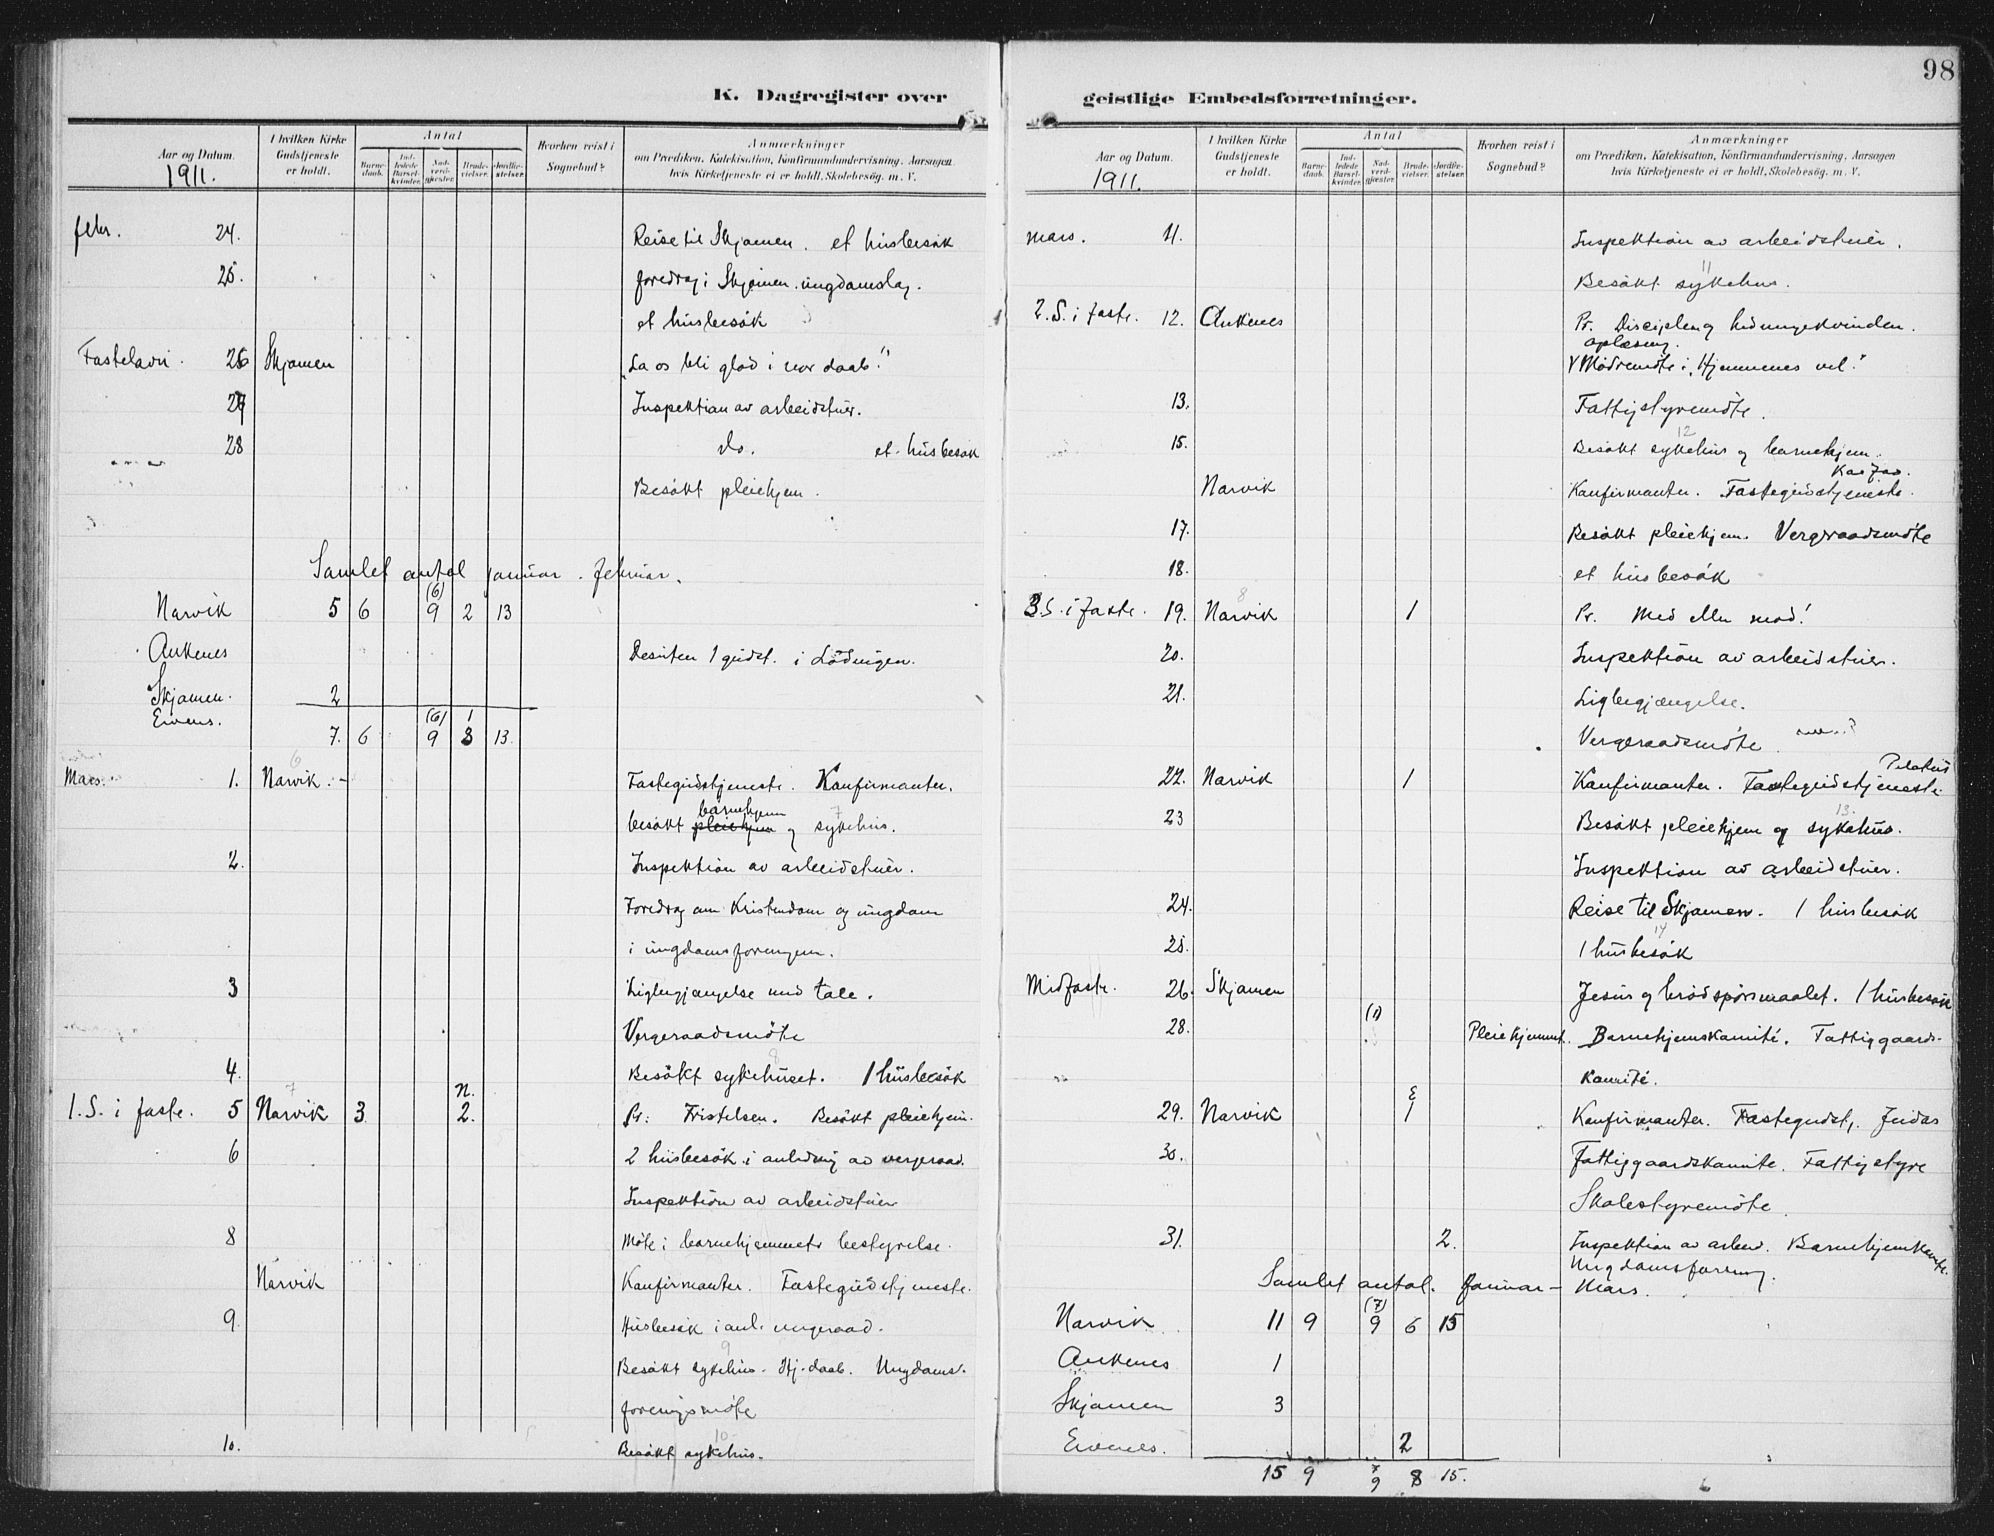 K. Dagregister over
Aar og Datum.
1911.
I hvilken Kirke Gudstjeneste er holdt.
Antal
Barnedaab.
Indledede Barselkvinder.
Nadverdgjæster.
Brudevielser.
Jordfæstelser.
Hvorhen reist i Sognebud?
Anmærkninger
om Prædiken, Katekisation, Konfirmandundervisning, Aarsagen
hvis Kirketjeneste ei er holdt, Skolebesøg. m. V.
febr. 24. Reise til Skjomen. et husbesök
25. foredrag i Skjomen ungdomslag.
et husbesök
Fastelavn. 26 Skjomen "La os bli glad i vor daab."
27 Inspektion av arbeidstuer.
28 do. et husbesök
Besökt pleiehjem.
Samlet antal januar. februar.
(6)
Narvik 5 6 9 2 13
Ankenes Desuten 1 gudst. i Lödingen.
Skjomen. 2
Evenes. (6) 1
7. 6 9 3 13.
6
Mars. 1. Narvik. Fastegudstjeneste. Konfirmanter.
barnehjem 7
besökt pleiehjem og sykehus.
2. Inspektion av arbeidstuer.
Foredrag om Kristendom og ungdom
i ungdomsforeningen.
3 Ligbegjængelse med tale.
Vergeraadsmöte
4. Besökt sykehuset. 1 husbesök
7 N.
1. S. i faste. 5 Narvik 3 2. Pr: Fristelsen. Besökt pleiehjem.
6 2 husbesök i anledning av vergeraad.
Inspektion av arbeidstuer
8 Möte i barnehjemmets bestyrelse.
Narvik Konfirmanter. Fastegudstjeneste.
9. Husbesök i anl. vergeraad.
9
Besökt sykehus. Hj.daab. Ungdoms-
foreningsmöte
10
10. Besökt sykehus.
98
geistlige Embedsforretninger.
Aar og Datum.
1911.
I hvilken Kirke Gudstjeneste er holdt.
Antal
Barnedaab.
Indledede Barselkvinder.
Nadverdgjæster.
Brudevielser.
Jordfæstelser.
Hvorhen reist i Sognebud?
Anmærkninger
om Prædiken, Katekisation, Konfirmandundervisning, Aarsagen
hvis Kirketjeneste ei er holdt, Skolebesøg. m. V.
mars. 11. Inspektion av arbeidstuer.
11
Besökt sykehus.
2. S. i faste. 12. Ankenes Pr. Disciplen og hedningekvinden.
oplæsning.
Mödremöte i "Hjemmenes vel."
13. Fattigstyremöte.
12
15. Besökt sykehus og barnehjem.
Kaifas.
Narvik Konfirmanter. Fastegudstjeneste.
17. Besökt pleiehjem. Vergeraadsmöte
18. et husbesök
8
3. S. i faste. 19. Narvik 1 Pr. Med eller mod!
20. Inspektion av arbeidstuer.
21. Ligbegjængelse.
Vergeraadsmöte
Pilatus
22. Narvik 1 Konfirmanter. Fastegudstjeneste
13.
23 Besökt pleiehjem og sykehus.
Inspektion av arbeidstuer.
24. Reise til Skjomen. 1 husbesök
14
25. 1 husbesök
Midfaste. 26. Skjomen Jesus og brödspörsmaalet. 1 husbesök
(1)
28. Pleiehjemmet. Barnehjemskomité. Fattiggaards-
komité.
E
29. Narvik 1 Konfirmanter. Fastegudst. Judas
30. Fattiggaardskomite. Fattigstyre
Skolestyremöte.
31. 2. Inspektion av arbeid. Barnehjemkomite.
Ungdomsforening.
Samlet antal. Januar - Mars.
(7)
Narvik 11 9 9 6 15
Ankenes 1
Skjomen 3
Evenes. 2
15 9 7 9 8 15.